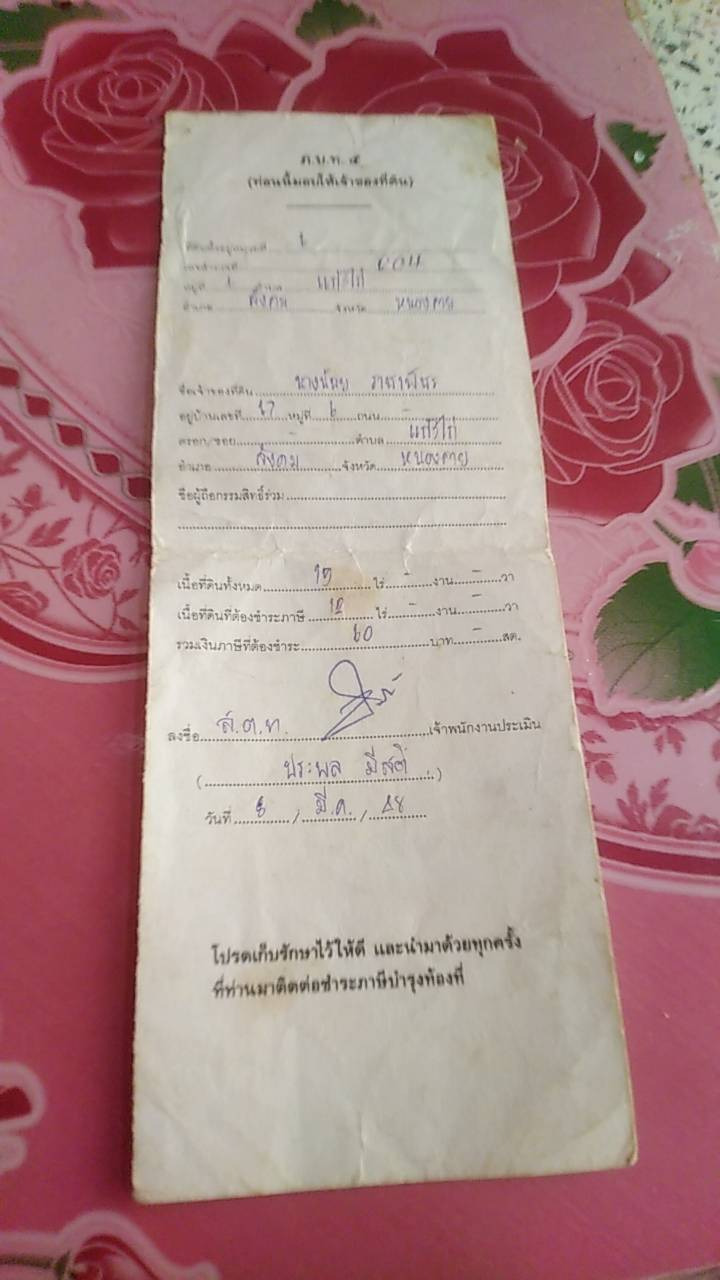 ภ.บ.ท. ๕
(ท่อนนี้มอบให้เจ้าของที่ดิน)
หมู่ที่ 1 ตำบล แก้งไก่
อำเภอ สังคม จังหวัด หนองคาย
ชื่อเจ้าของที่ดิน นางน้อย
อยู่บ้านเลขที่ 67 หมู่ที่ 6 ถนน -
ตรอก/ซอย - ตำบล แก้งไก่
อำเภอ สังคม จังหวัด หนองคาย
ชื่อผู้ถือกรรมสิทธิ์ร่วม
เนื้อที่ดินทั้งหมด ไร่ - งาน - วา
เนื้อที่ดินที่ต้องชำระภาษี 12 ไร่ - งาน - วา
รวมเงินภาษีที่ต้องชำระ 60 บาท - สต.
ลงชื่อ ส.ต.ท. เจ้าพนักงานประเมิน
(ประพล มีสติ)
วันที่ 8 / มี.ค. /
โปรดเก็บรักษาไว้ให้ดี และนำมาด้วยทุกครั้ง
ที่ท่านมาติดต่อชำระภาษีบำรุงท้องที่